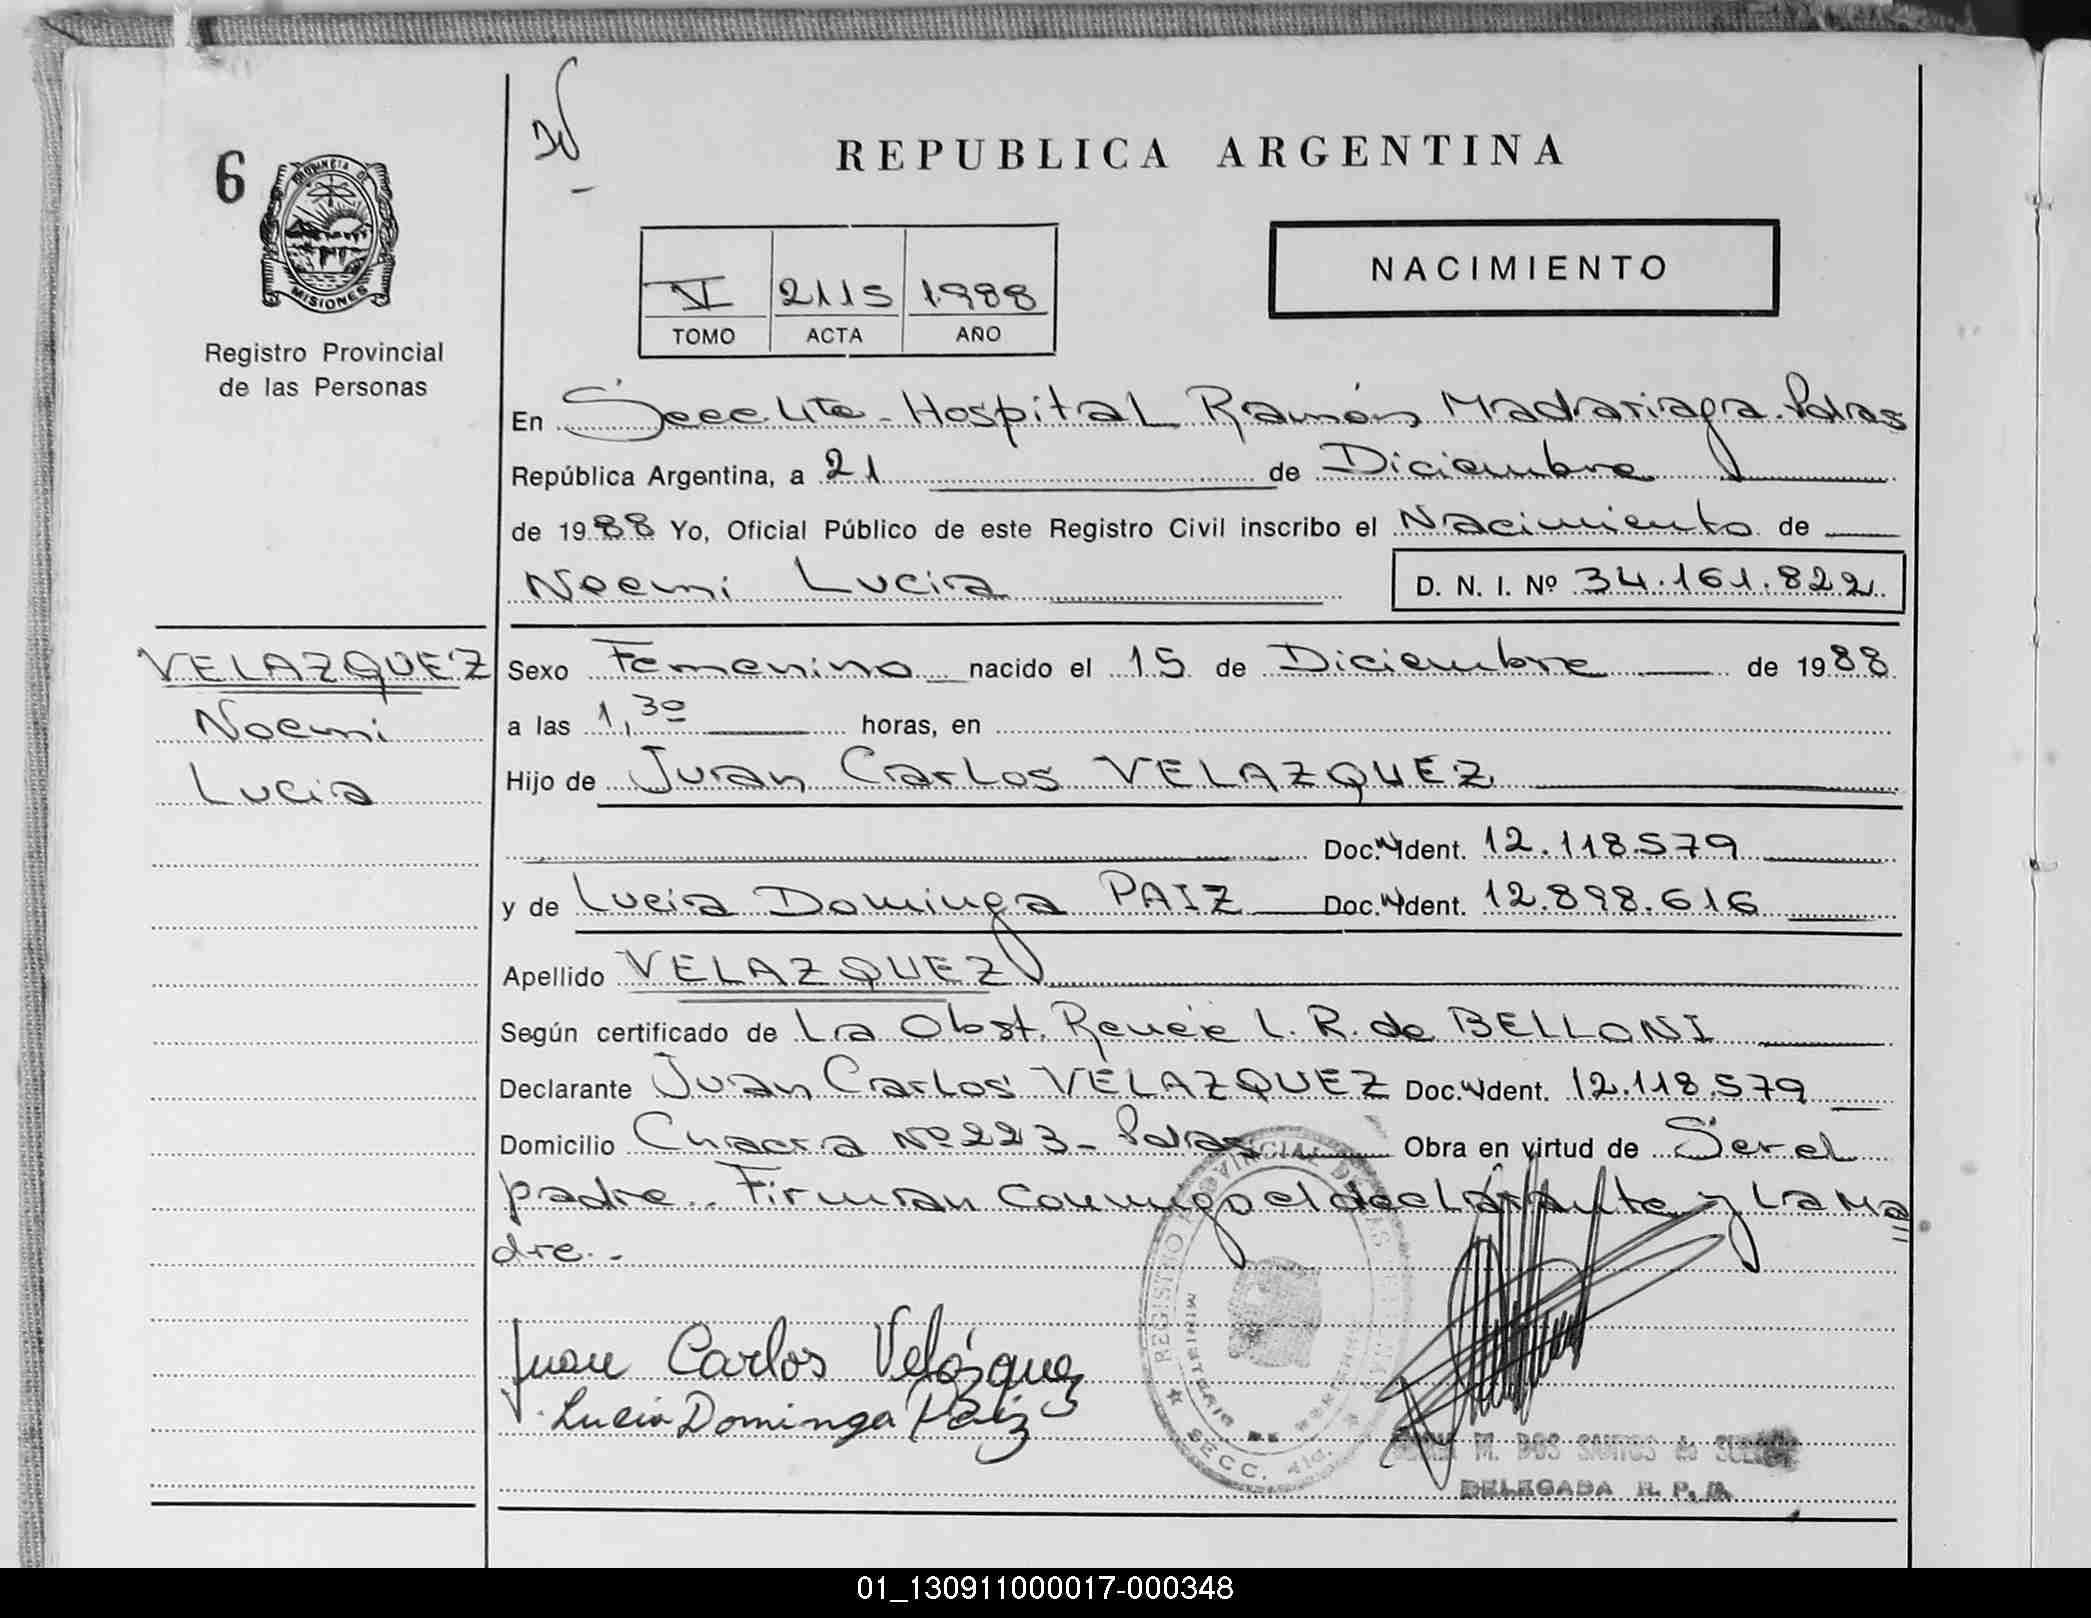 REPUBLICA ARGENTINA
6
PROVINCIA DE
MISIONES
Registro Provincial
de las Personas
NACIMIENTO
VI 2115 1988
TOMO ACTA AÑO
En Secc. 4ta - Hospital Ramón Madariaga. Pdas
República Argentina, a 21 de Diciembre
de 1988 Yo, Oficial Público de este Registro Civil inscribo el Nacimiento de
Noemi Lucia D. N. I. Nº 34.161.822
VELAZQUEZ
Noemi
Lucia
Sexo Femenino nacido el 15 de Diciembre de 1988
a las 1,30 horas, en
Hijo de Juan Carlos VELAZQUEZ
Doc. Ident. 12.118.579
y de Lucia Dominga PAIZ Doc. Ident. 12.898.616
Apellido VELAZQUEZ
Según certificado de La Obst. Reneé L. R. de BELLONI
Declarante Juan Carlos VELAZQUEZ Doc. Ident. 12.118.579
Domicilio Chacra Nº 223 - Pdas Obra en virtud de Ser el
padre.. Firman conmigo el declarante y la ma
dre. -
Juan Carlos Velázquez
Lucia Dominga Paiz
REGISTRO PROVINCIAL DE LAS PERSONAS
SECC. 4ta.
M. DOS SANTOS de
DELEGADA R. P. P.
01_130911000017-000348